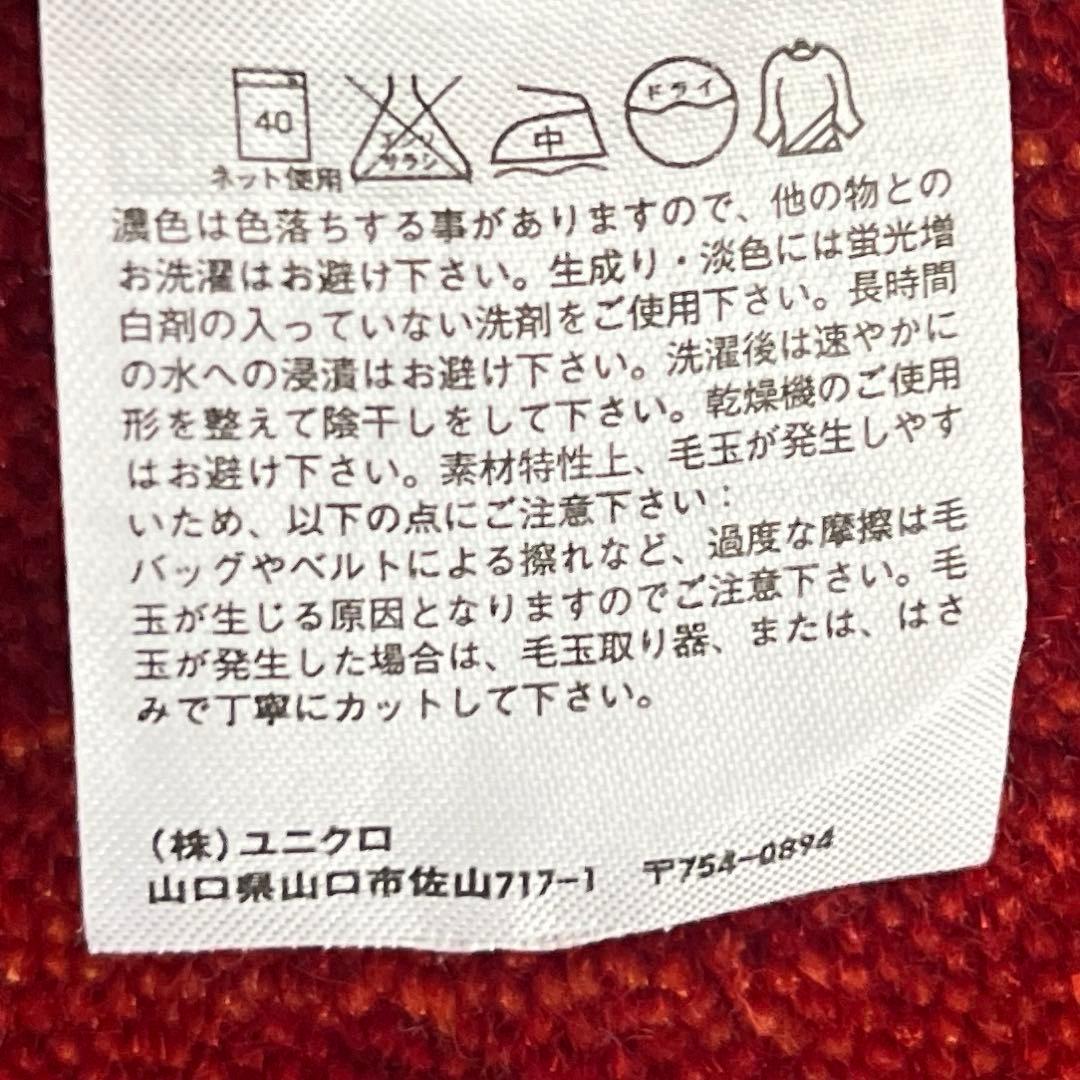 40
ネット使用
エンソ
サラシ
中
ドライ
濃色は色落ちする事がありますので、他の物との
お洗濯はお避け下さい。生成り・淡色には蛍光増
白剤の入っていない洗剤をご使用下さい。長時間
の水への浸漬はお避け下さい。洗濯後は速やかに
形を整えて陰干しをして下さい。乾燥機のご使用
はお避け下さい。素材特性上、毛玉が発生しやす
いため、以下の点にご注意下さい：
バッグやベルトによる擦れなど、過度な摩擦は毛
玉が生じる原因となりますのでご注意下さい。毛
玉が発生した場合は、毛玉取り器、または、はさ
みで丁寧にカットして下さい。
(株)ユニクロ
山口県山口市佐山717-1 〒754-0894